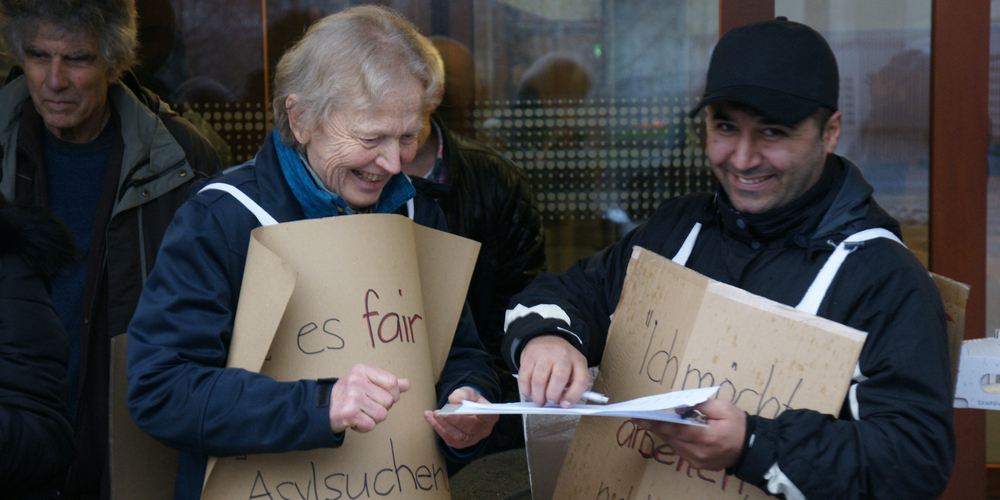 es fair
Asylsuchen
"Ich möcht
arbeiten